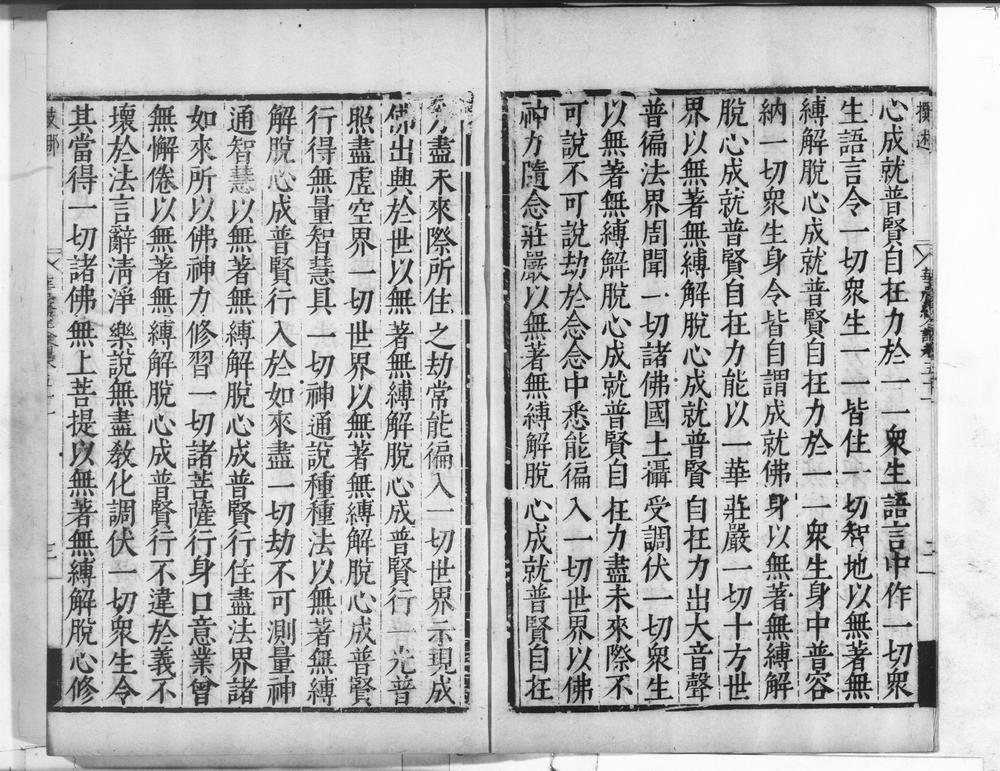 心成就普賢自在力於一一眾生語言中作一切眾
生語言令一切眾生一一皆住一切智地以無著無
縛解脫心成就普賢自在力於一一眾生身中普容
納一切眾生身令皆自謂成就佛身以無著無縛解
脫心成就普賢自在力能以一華莊嚴一切十方世
界以無著無縛解脫心成就普賢自在力出大音聲
普徧法界周聞一切諸佛國土攝受調伏一切眾生
以無著無縛解脫心成就普賢自在力盡未來際不
可說不可說劫於念念中悉能徧入一切世界以佛
神力隨念莊嚴以無著無縛解脫心成就普賢自在
力盡未來際所住之劫常能徧入一切世界示現成
佛出興於世以無著無縛解脫心成普賢行一光普
照盡虛空界一切世界以無著無縛解脫心成普賢
行得無量智慧具一切神通說種種法以無著無縛
解脫心成普賢行入於如來盡一切劫不可測量神
通智慧以無著無縛解脫心成普賢行住盡法界諸
如來所以佛神力修習一切諸菩薩行身口意業曾
無懈倦以無著無縛解脫心成普賢行不違於義不
壞於法言辭清淨樂說無盡教化調伏一切眾生令
其當得一切諸佛無上菩提以無著無縛解脫心修